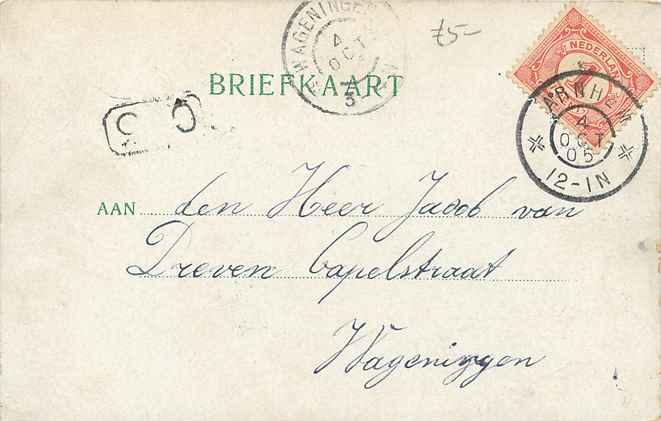 WAGENINGEN
4
OCT
A
3
£5-
NEDERLAND
BRIEFKAART
ARNHEM
4
OCT
05
12-1N
AAN den Heer Jacob van
Dreven Capelstraat
Wageningen